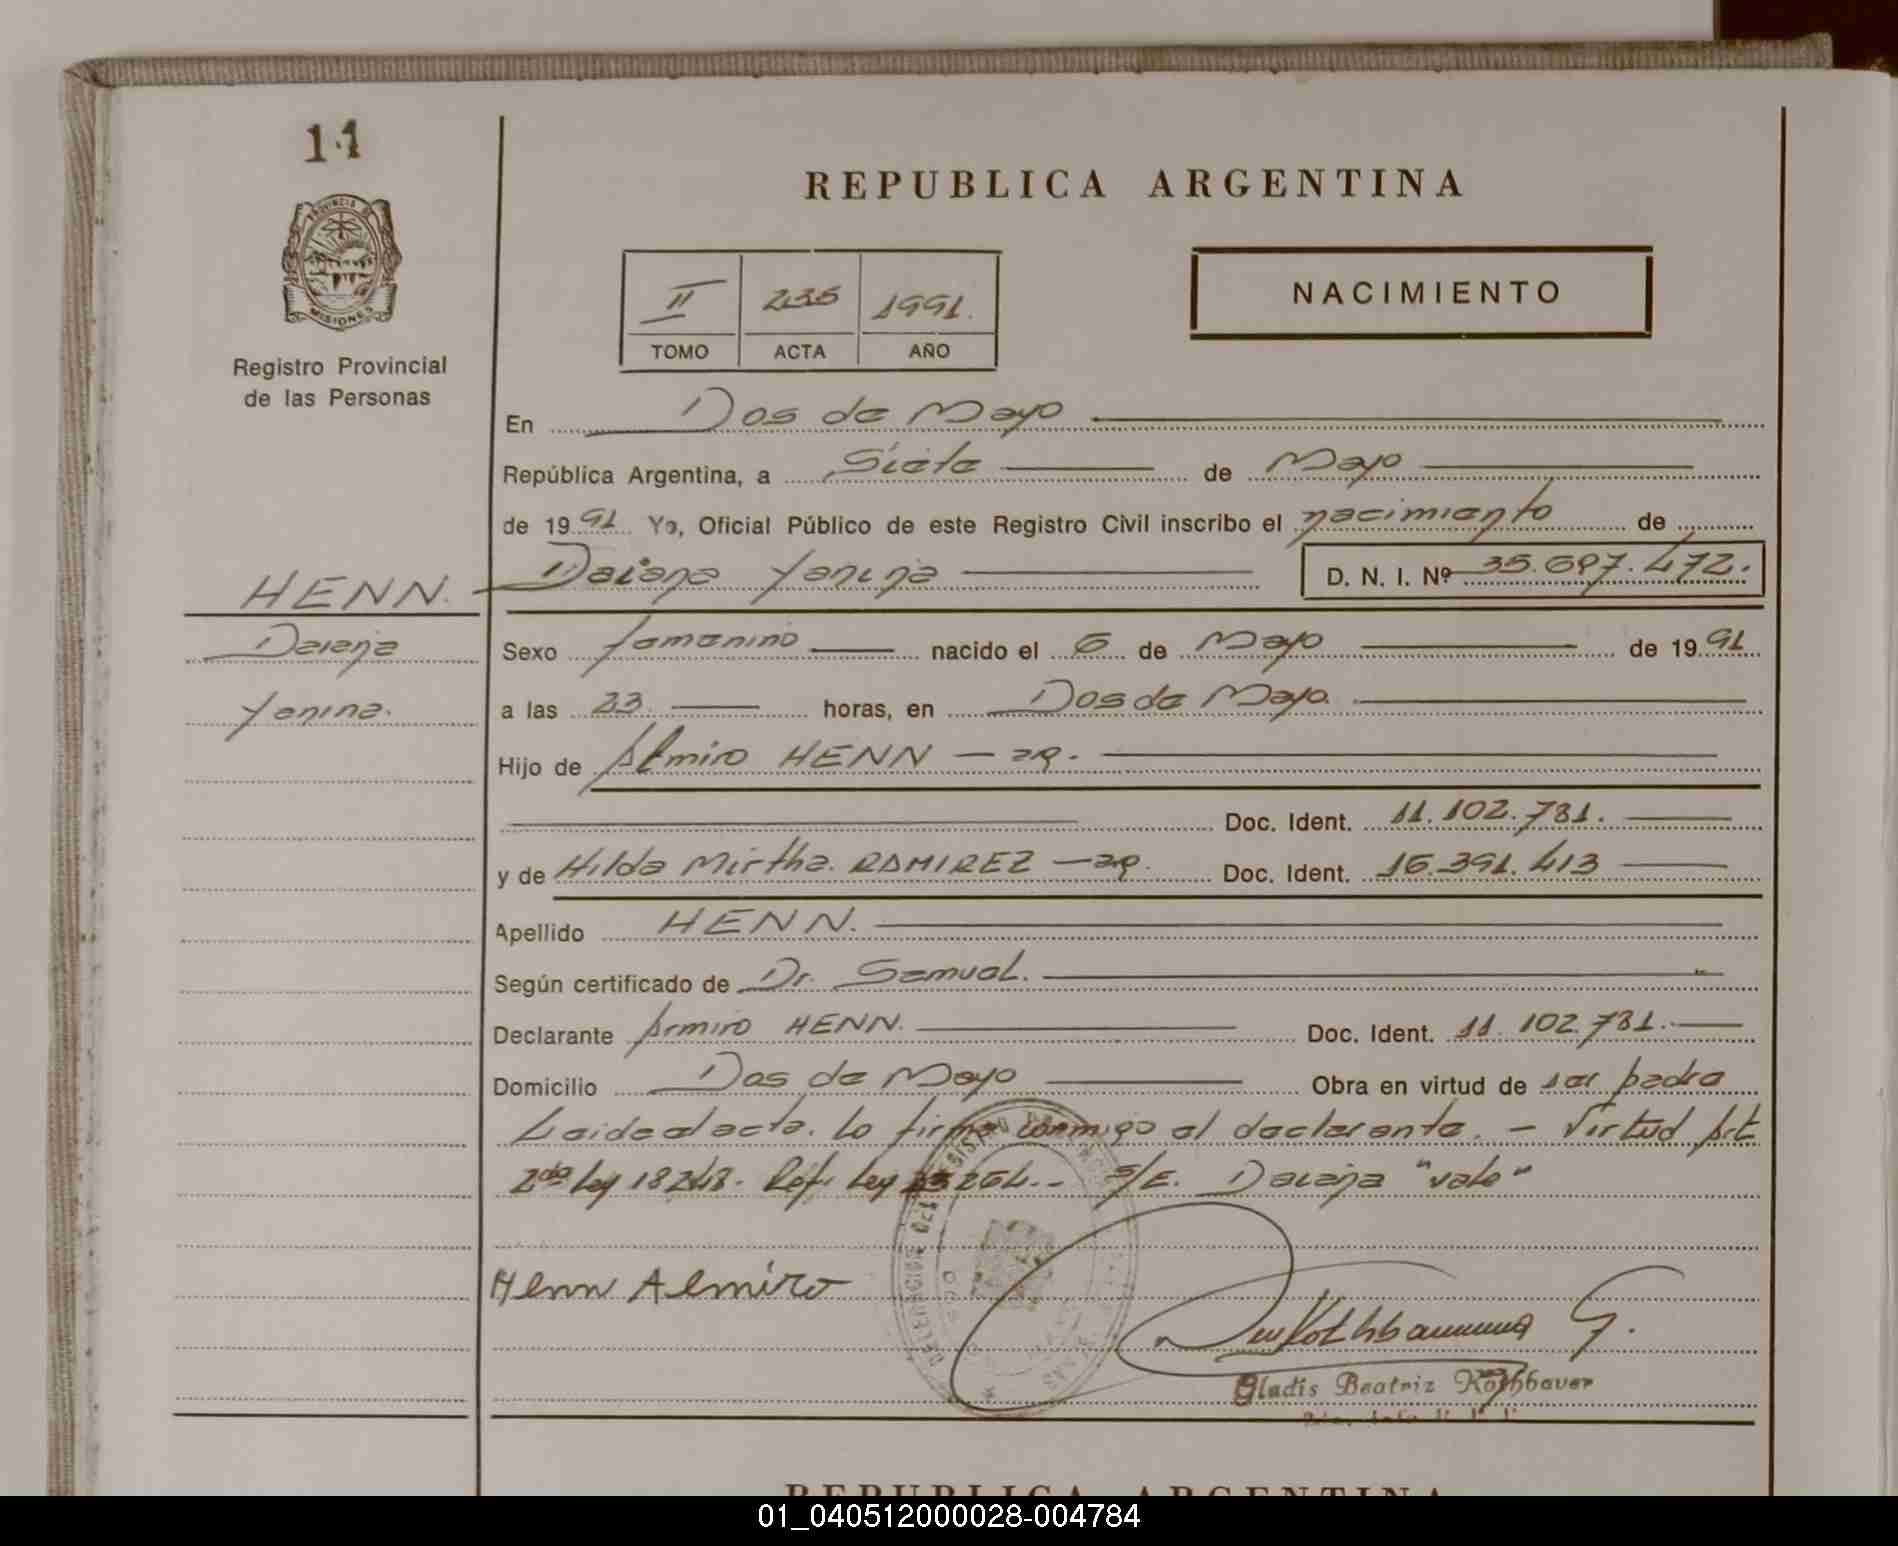 11
PROVINCIA DE
MISIONES
Registro Provincial
de las Personas
REPUBLICA ARGENTINA
II 235 1991.
TOMO ACTA AÑO
NACIMIENTO
En Dos de Mayo
República Argentina, a Siete de Mayo
de 1991 Yo, Oficial Público de este Registro Civil inscribo el nacimiento de
HENN. Daiana Yanina D. N. I. Nº 35.697.472.
Daiana
Yanina.
Sexo femenino nacido el 6 de Mayo de 1991
a las 23 horas, en Dos de Mayo.
Hijo de Almiro HENN - ar.
Doc. Ident. 11.102.781.
y de Hilda Mirtha RAMIREZ - ar. Doc. Ident. 16.391.413
Apellido HENN.
Según certificado de Dr. Samuel.
Declarante Armiro HENN. Doc. Ident. 11.102.781.
Domicilio Dos de Mayo Obra en virtud de ser padre
Leida el acta. Lo firma conmigo el declarante. - Virtud Art
2do Ley 18248. Ref. Ley 23264.- S/E. Daiana "vale"
Henn Almiro
Gladis Beatriz Rothbauer
REPUBLICA ARGENTINA
01_040512000028-004784